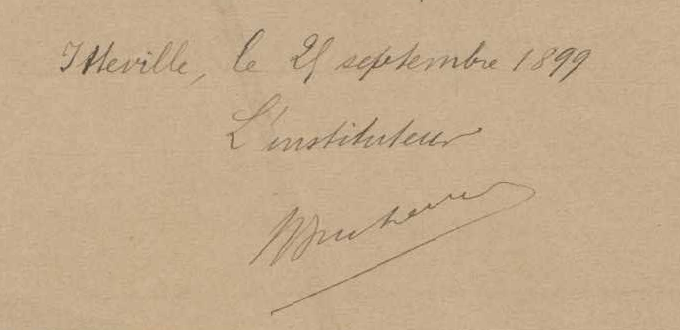 Itteville, le 25 septembre 1899
L'instituteur